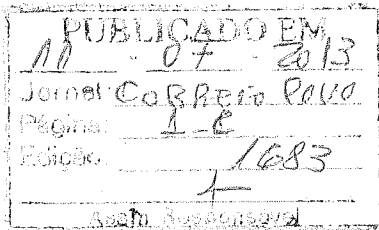 PUBLICADO EM
11 . 07 . 2013
Jornal: CORREIO POVO
Página: 1-C
Edição: 1683
Assin. Responsável